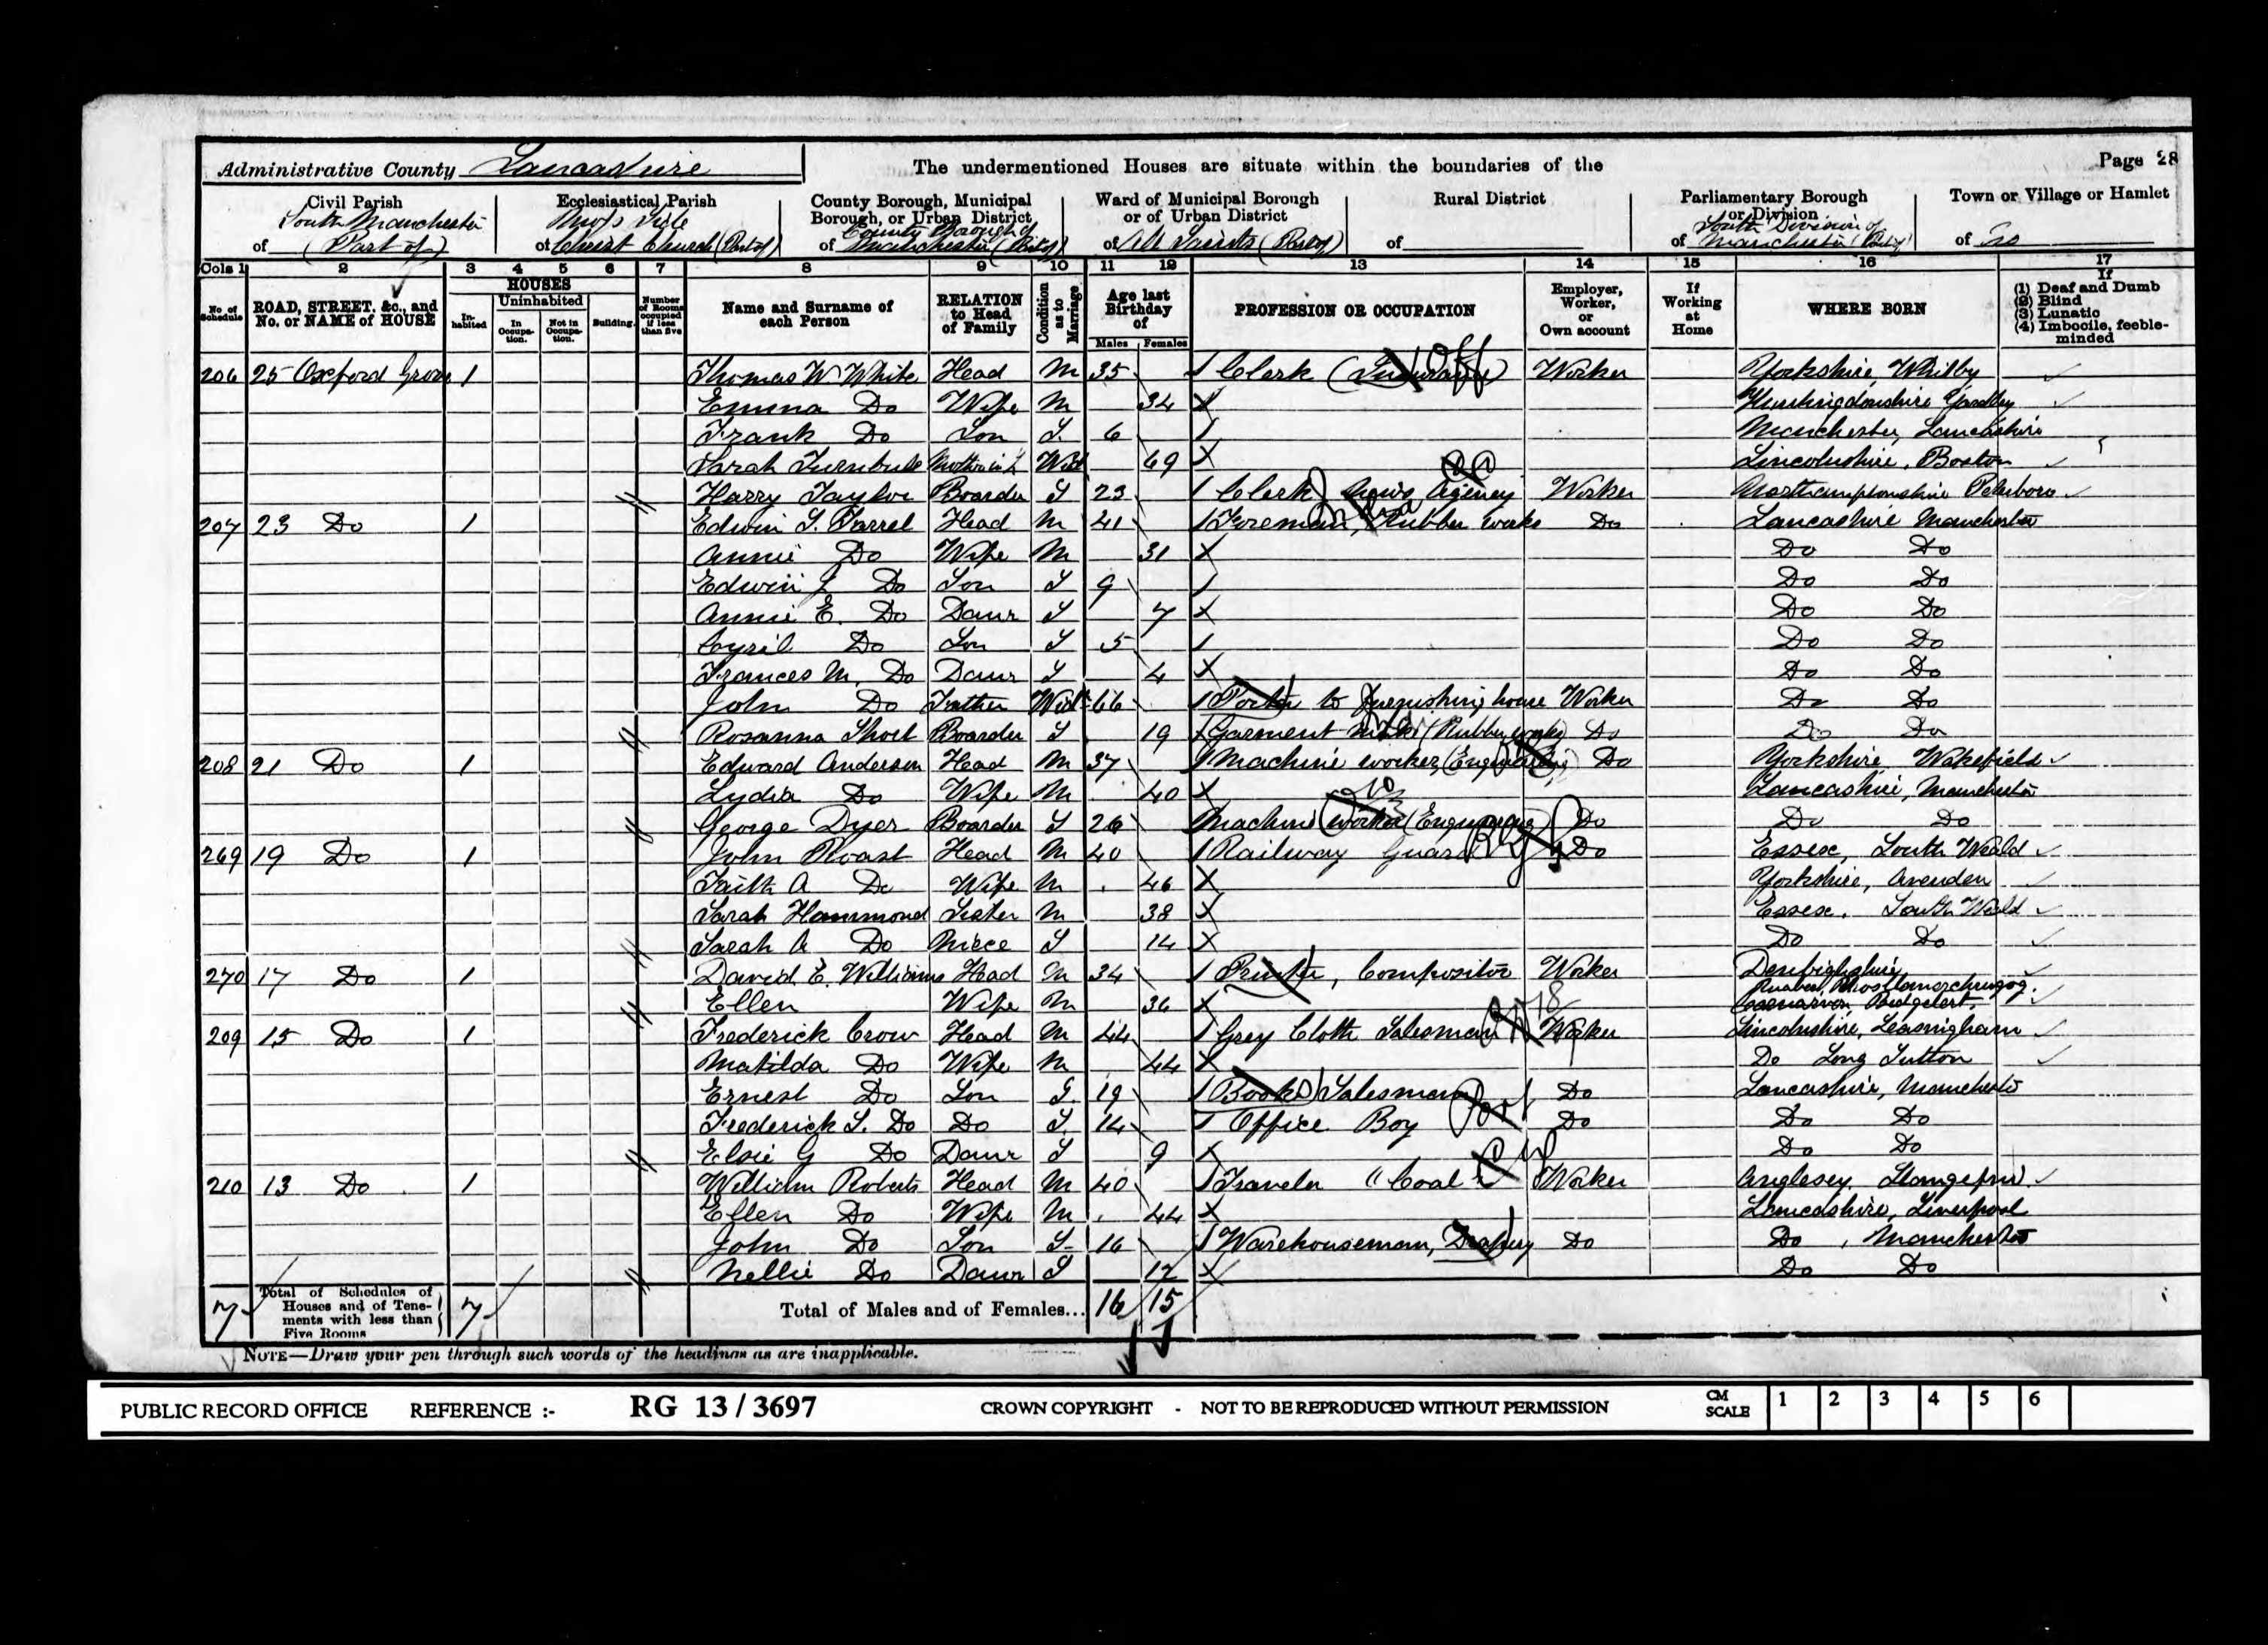 Administrative County Lancashire The undermentioned Houses are situate within the boundaries of the Page 28
Civil Parish Ecclesiastical Parish County Borough, Municipal Borough, or Urban District Ward of Municipal Borough or of Urban District Rural District Parliamentary Borough or Division Town or Village or Hamlet
of South Manchester (Part of) of Moss Side Christ Church (Part of) of County Borough of Manchester (Part of) of All Saints (Part of) of of South Division of Manchester (Part of) of
Cols 1 2 3 4 5 6 7 8 9 10 11 12 13 14 15 16 17
No of Schedule ROAD, STREET, &c., and No. or NAME of HOUSE HOUSES Inhabited Uninhabited In Occupation. Not in Occupation. Building. Number of Rooms occupied if less than five Name and Surname of each Person RELATION to Head of Family Condition as to Marriage Age last Birthday of Males Females PROFESSION OR OCCUPATION Employer, Worker, or Own account If Working at Home WHERE BORN If (1) Deaf and Dumb (2) Blind (3) Lunatic (4) Imbecile, feeble-minded
206 25 Oxford Grove 1 Thomas W White Head M 35 Clerk (Insurance) Off Worker Yorkshire, Whitby
Emma Do Wife M 34 X Huntingdonshire Yaxley
Frank Do Son S. 6 Manchester, Lancashire
Sarah Turnbull Mother in L Wid 69 X Lincolnshire, Boston
Harry Taylor Boarder S 23 Clerk News Agency Worker Northamptonshire Peterboro
207 23 Do 1 Edwin S. Farrel Head M 41 Foreman, Rubber works Do Lancashire Manchester
Annie Do Wife M 31 X Do Do
Edwin J Do Son S 9 Do Do
Annie E. Do Daur S 7 X Do Do
Cyril Do Son S 5 Do Do
Frances M. Do Daur S 4 X Do Do
John Do Father Widr 66 Porter to Furnishing house Worker Do Do
Rosanna Short Boarder S 19 Garment Maker (Rubber works) Do Do Do
208 21 Do 1 Edward Anderson Head M 37 Machine worker (Engineering) Do Yorkshire Wakefield
Lydia Do Wife M 40 X Lancashire, Manchester
George Dyer Boarder S 26 Machine worker (Engineering) Do Do Do
269 19 Do 1 John Roast Head M 40 Railway Guard Do Essex, South Weald
Faith A Do Wife M 46 X Yorkshire,
Sarah Hammond Sister M 38 X Essex, South Weald
Sarah A Do Niece S 14 X Do Do
270 17 Do 1 David E. Williams Head M 34 Printer, Compositor Worker Denbighshire Ruabon Rhosllanerchrugog.
Ellen Wife M 36 X Caernarvon, Bedgelert.
209 15 Do 1 Frederick Crow Head M 44 Grey Cloth Salesman Worker Lincolnshire, Leasingham
Matilda Do Wife M 44 X Do Long Sutton
Ernest Do Son S. 19 Books Salesman Do Lancashire, Manchester
Frederick S. Do Do S. 14 Office Boy Port Do Do Do
Elsie G Do Daur S 9 X Do Do
210 13 Do 1 William Roberts Head M 40 Traveler "Coal Worker Anglesey, Llangefni
Ellen Do Wife M 44 X Lancashire, Liverpool
John Do Son S 16 Warehouseman, Drapery Do Do, Manchester
Nellie Do Daur S 12 X Do Do
7 Total of Schedules of Houses and of Tenements with less than Five Rooms 7 Total of Males and of Females... 16 15
NOTE—Draw your pen through such words of the headings as are inapplicable.
PUBLIC RECORD OFFICE REFERENCE :- RG 13 / 3697 CROWN COPYRIGHT - NOT TO BE REPRODUCED WITHOUT PERMISSION CM SCALE 1 2 3 4 5 6